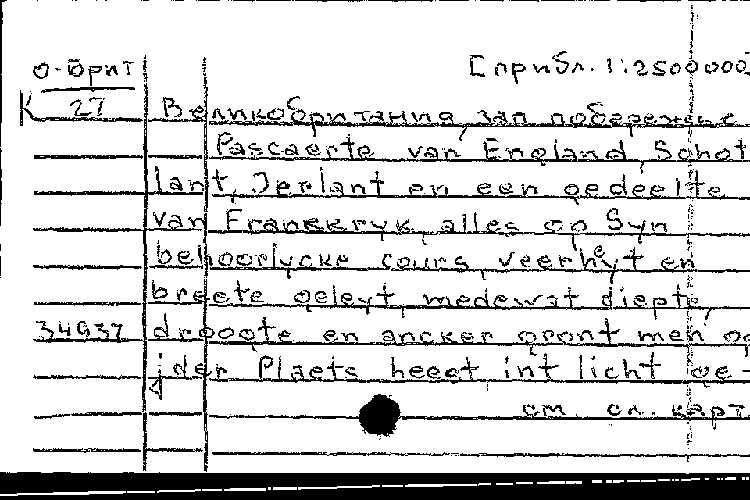 О-Брит [прибл. 1:2500000]
К 27 Великобритания, зап побережье
Pascaerte van England, Schot
lant, Jerlant en een gedeelte
van Franckryk, alles op Syn
behoorlycke cours, veerheyt en
breete geleyt, medewat diepte,
34937 droogte en ancker gront men op
ijder Plaets heeft int licht ge-
см. сл. карт